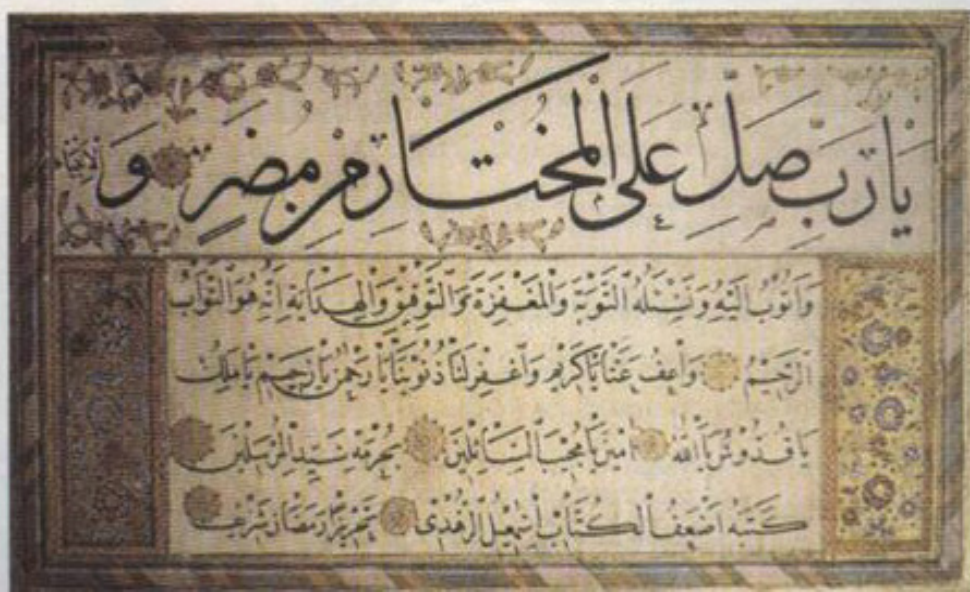 يَا رَبِّ صَلِّ عَلَى الْمُخْتَارِ مِنْ مُضَرٍ وَ
وَاَتُوبُ اِلَيْهِ وَنَسْئَلُهُ التَّوْبَةَ وَالْمَغْفِرَةَ وَالتَّوْفِيقَ وَالْهِدَايَةَ اِنَّهُ هُوَ التَّوَّابُ
الرَّحِيمُ وَاعْفُ عَنَّا يَا كَرِيمُ وَاغْفِرْ لَنَا ذُنُوبَنَا يَا رَحْمٰنُ يَا رَحِيمُ يَا مَلِكُ
يَا قُدُّوسُ يَا اَللّٰهُ اٰمِينَ يَا مُجِيبَ السَّائِلِينَ بِحُرْمَةِ سَيِّدِ الْمُرْسَلِينَ
كَتَبَهُ اَضْعَفُ الْكُتَّابِ اِسْمٰعِيلُ الزُّهْدِى رَمَضَانَ شَرِيف